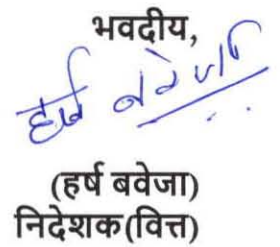 भवदीय,
हर्ष बवेजा
(हर्ष बवेजा)
निदेशक(वित्त)